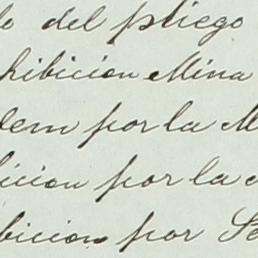 del pliego
hibicion Mina
dem por la M
icion por la
bicion por Se